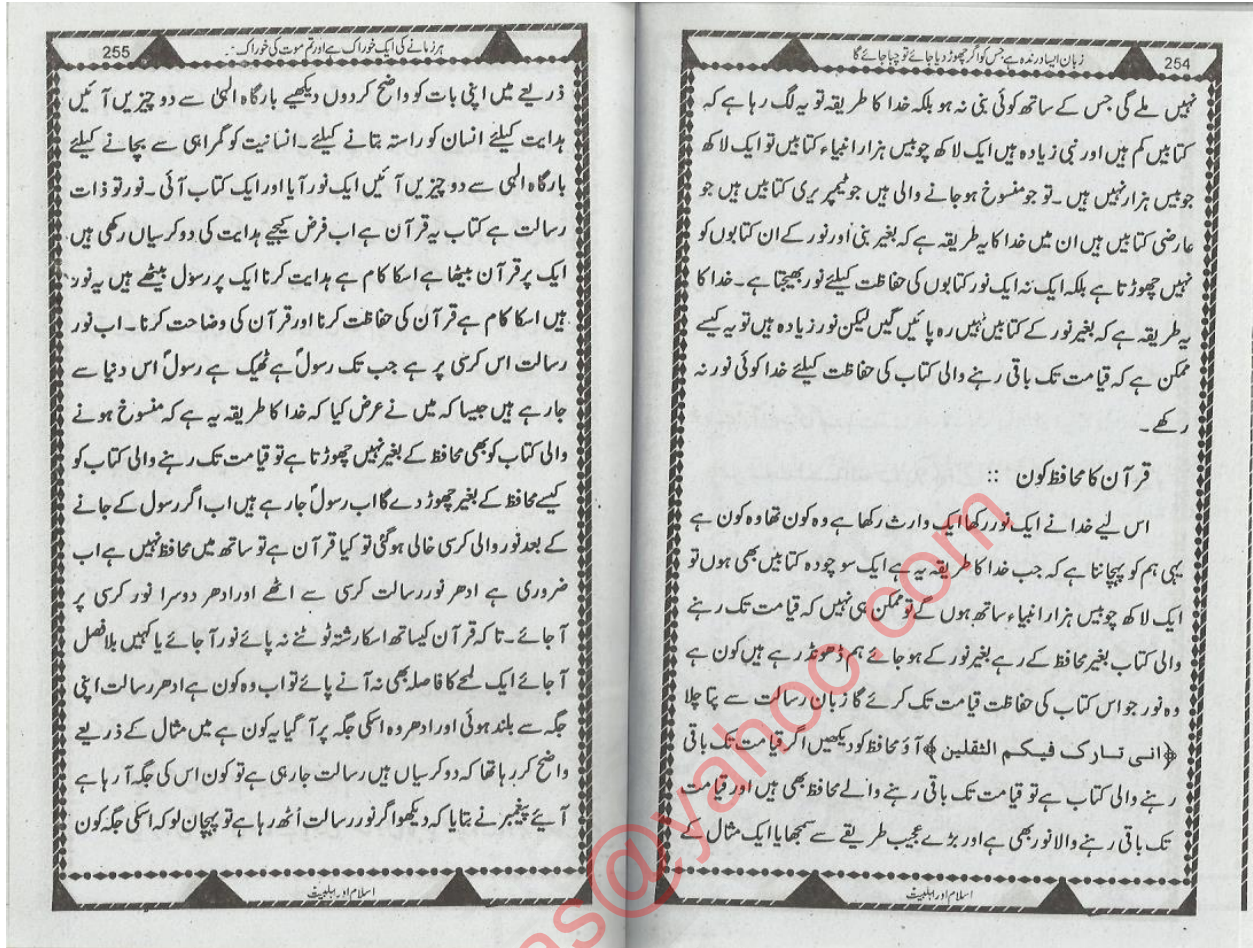 254
زبان ایسا درندہ ہے جس کو اگر چھوڑ دیا جائے تو چبا جائے گا
نہیں ملے گی جس کے ساتھ کوئی بنی نہ ہو بلکہ خدا کا طریقہ تو یہ لگ رہا ہے کہ
کتابیں کم ہیں اور نبی زیادہ ہیں ایک لاکھ چوبیس ہزار انبیاء کتابیں تو ایک لاکھ
چوبیس ہزار نہیں ہیں ۔ تو جو منسوخ ہو جانے والی ہیں جو ٹیمپریری کتابیں ہیں جو
عارضی کتابیں ہیں ان میں خدا کا یہ طریقہ ہے کہ بغیر بنی اور نور کے ان کتابوں کو
نہیں چھوڑتا ہے بلکہ ایک نہ ایک نور کتابوں کی حفاظت کیلئے نور بھیجتا ہے ۔ خدا کا
یہ طریقہ ہے کہ بغیر نور کے کتابیں نہیں رہ پائیں گیں لیکن نور زیادہ ہیں تو یہ کیسے
ممکن ہے کہ قیامت تک باقی رہنے والی کتاب کی حفاظت کیلئے خدا کوئی نور نہ
رکھے ۔
قرآن کا محافظ کون ::
اس لیے خدا نے ایک نور رکھا ایک وارث رکھا ہے وہ کون تھا وہ کون ہے
یہی ہم کو پہچاننا ہے کہ جب خدا کا طریقہ یہ ہے ایک سو چودہ کتابیں بھی ہوں تو
ایک لاکھ چوبیس ہزار انبیاء ساتھ ہوں گے تو ممکن ہی نہیں کہ قیامت تک رہنے
والی کتاب بغیر محافظ کے رہے بغیر نور کے ہو جائے ہم ڈھونڈ رہے ہیں کون ہے
وہ نور جو اس کتاب کی حفاظت قیامت تک کرئے گا زبان رسالت سے پتا چلا
﴿انی تارک فیکم الثقلین﴾ آؤ محافظ کو دیکھیں اگر قیامت تک باقی
رہنے والی کتاب ہے تو قیامت تک باقی رہنے والے محافظ بھی ہیں اور قیامت
تک باقی رہنے والا نور بھی ہے اور بڑے عجیب طریقے سے سمجھایا ایک مثال کے
اسلام اور اہلبیت
255
ہر زمانے کی ایک خوراک ہے اور تم موت کی خوراک ۔
ذریعے میں اپنی بات کو واضح کردوں دیکھیے بارگاہ الہیٰ سے دو چیزیں آئیں
ہدایت کیلئے انسان کو راستہ بتانے کیلئے ۔ انسانیت کو گمراہی سے بچانے کیلئے
بارگاہ الہی سے دو چیزیں آئیں ایک نور آیا اور ایک کتاب آئی ۔ نور تو ذات
رسالت ہے کتاب یہ قرآن ہے اب فرض کیجیے ہدایت کی دو کرسیاں رکھی ہیں
ایک پر قرآن بیٹھا ہے اسکا کام ہے ہدایت کرنا ایک پر رسول بیٹھے ہیں یہ نور
ہیں اسکا کام ہے قرآن کی حفاظت کرنا اور قرآن کی وضاحت کرنا ۔ اب نور
رسالت اس کرسی پر ہے جب تک رسولؐ ہے ٹھیک ہے رسولؐ اس دنیا سے
جا رہے ہیں جیسا کہ میں نے عرض کیا کہ خدا کا طریقہ یہ ہے کہ منسوخ ہونے
والی کتاب کو بھی محافظ کے بغیر نہیں چھوڑتا ہے تو قیامت تک رہنے والی کتاب کو
کیسے محافظ کے بغیر چھوڑ دے گا اب رسولؐ جا رہے ہیں اب اگر رسول کے جانے
کے بعد نور والی کرسی خالی ہو گئی تو کیا قرآن ہے تو ساتھ میں محافظ نہیں ہے اب
ضروری ہے ادھر نور رسالت کرسی سے اٹھے اور ادھر دوسرا نور کرسی پر
آ جائے ۔ تا کہ قرآن کیساتھ اسکا رشتہ ٹوٹنے نہ پائے نور آ جائے یا کہیں بلا فصل
آ جائے ایک لمحے کا فاصلہ بھی نہ آنے پائے تو اب وہ کون ہے ادھر رسالت اپنی
جگہ سے بلند ہوئی اور ادھر وہ اسکی جگہ پر آ گیا یہ کون ہے میں مثال کے ذریعے
واضح کر رہا تھا کہ دو کرسیاں ہیں رسالت جا رہی ہے تو کون اس کی جگہ آ رہا ہے
آیئے پیغمبر نے بتایا کہ دیکھو اگر نور رسالت اُٹھ رہا ہے تو پہچان لو کہ اسکی جگہ کون
اسلام اور اہلبیت
as@yahoo.com